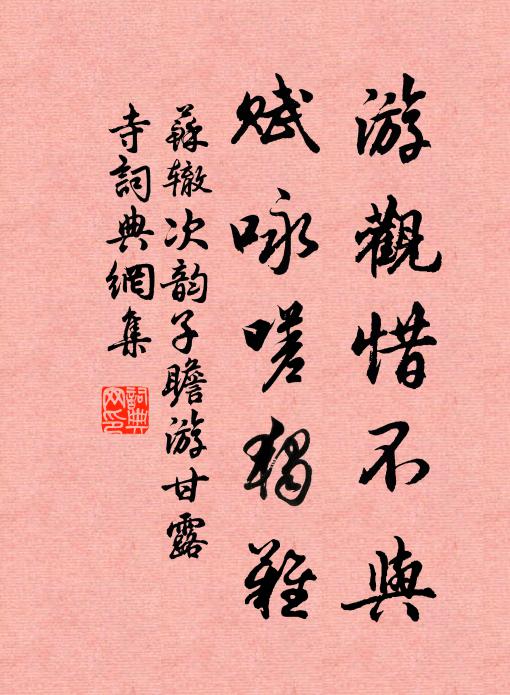 游觀惜不與
賦咏嗟獨難
蘇辙次韵子瞻游甘露
寺詞典網集
詞典
网印